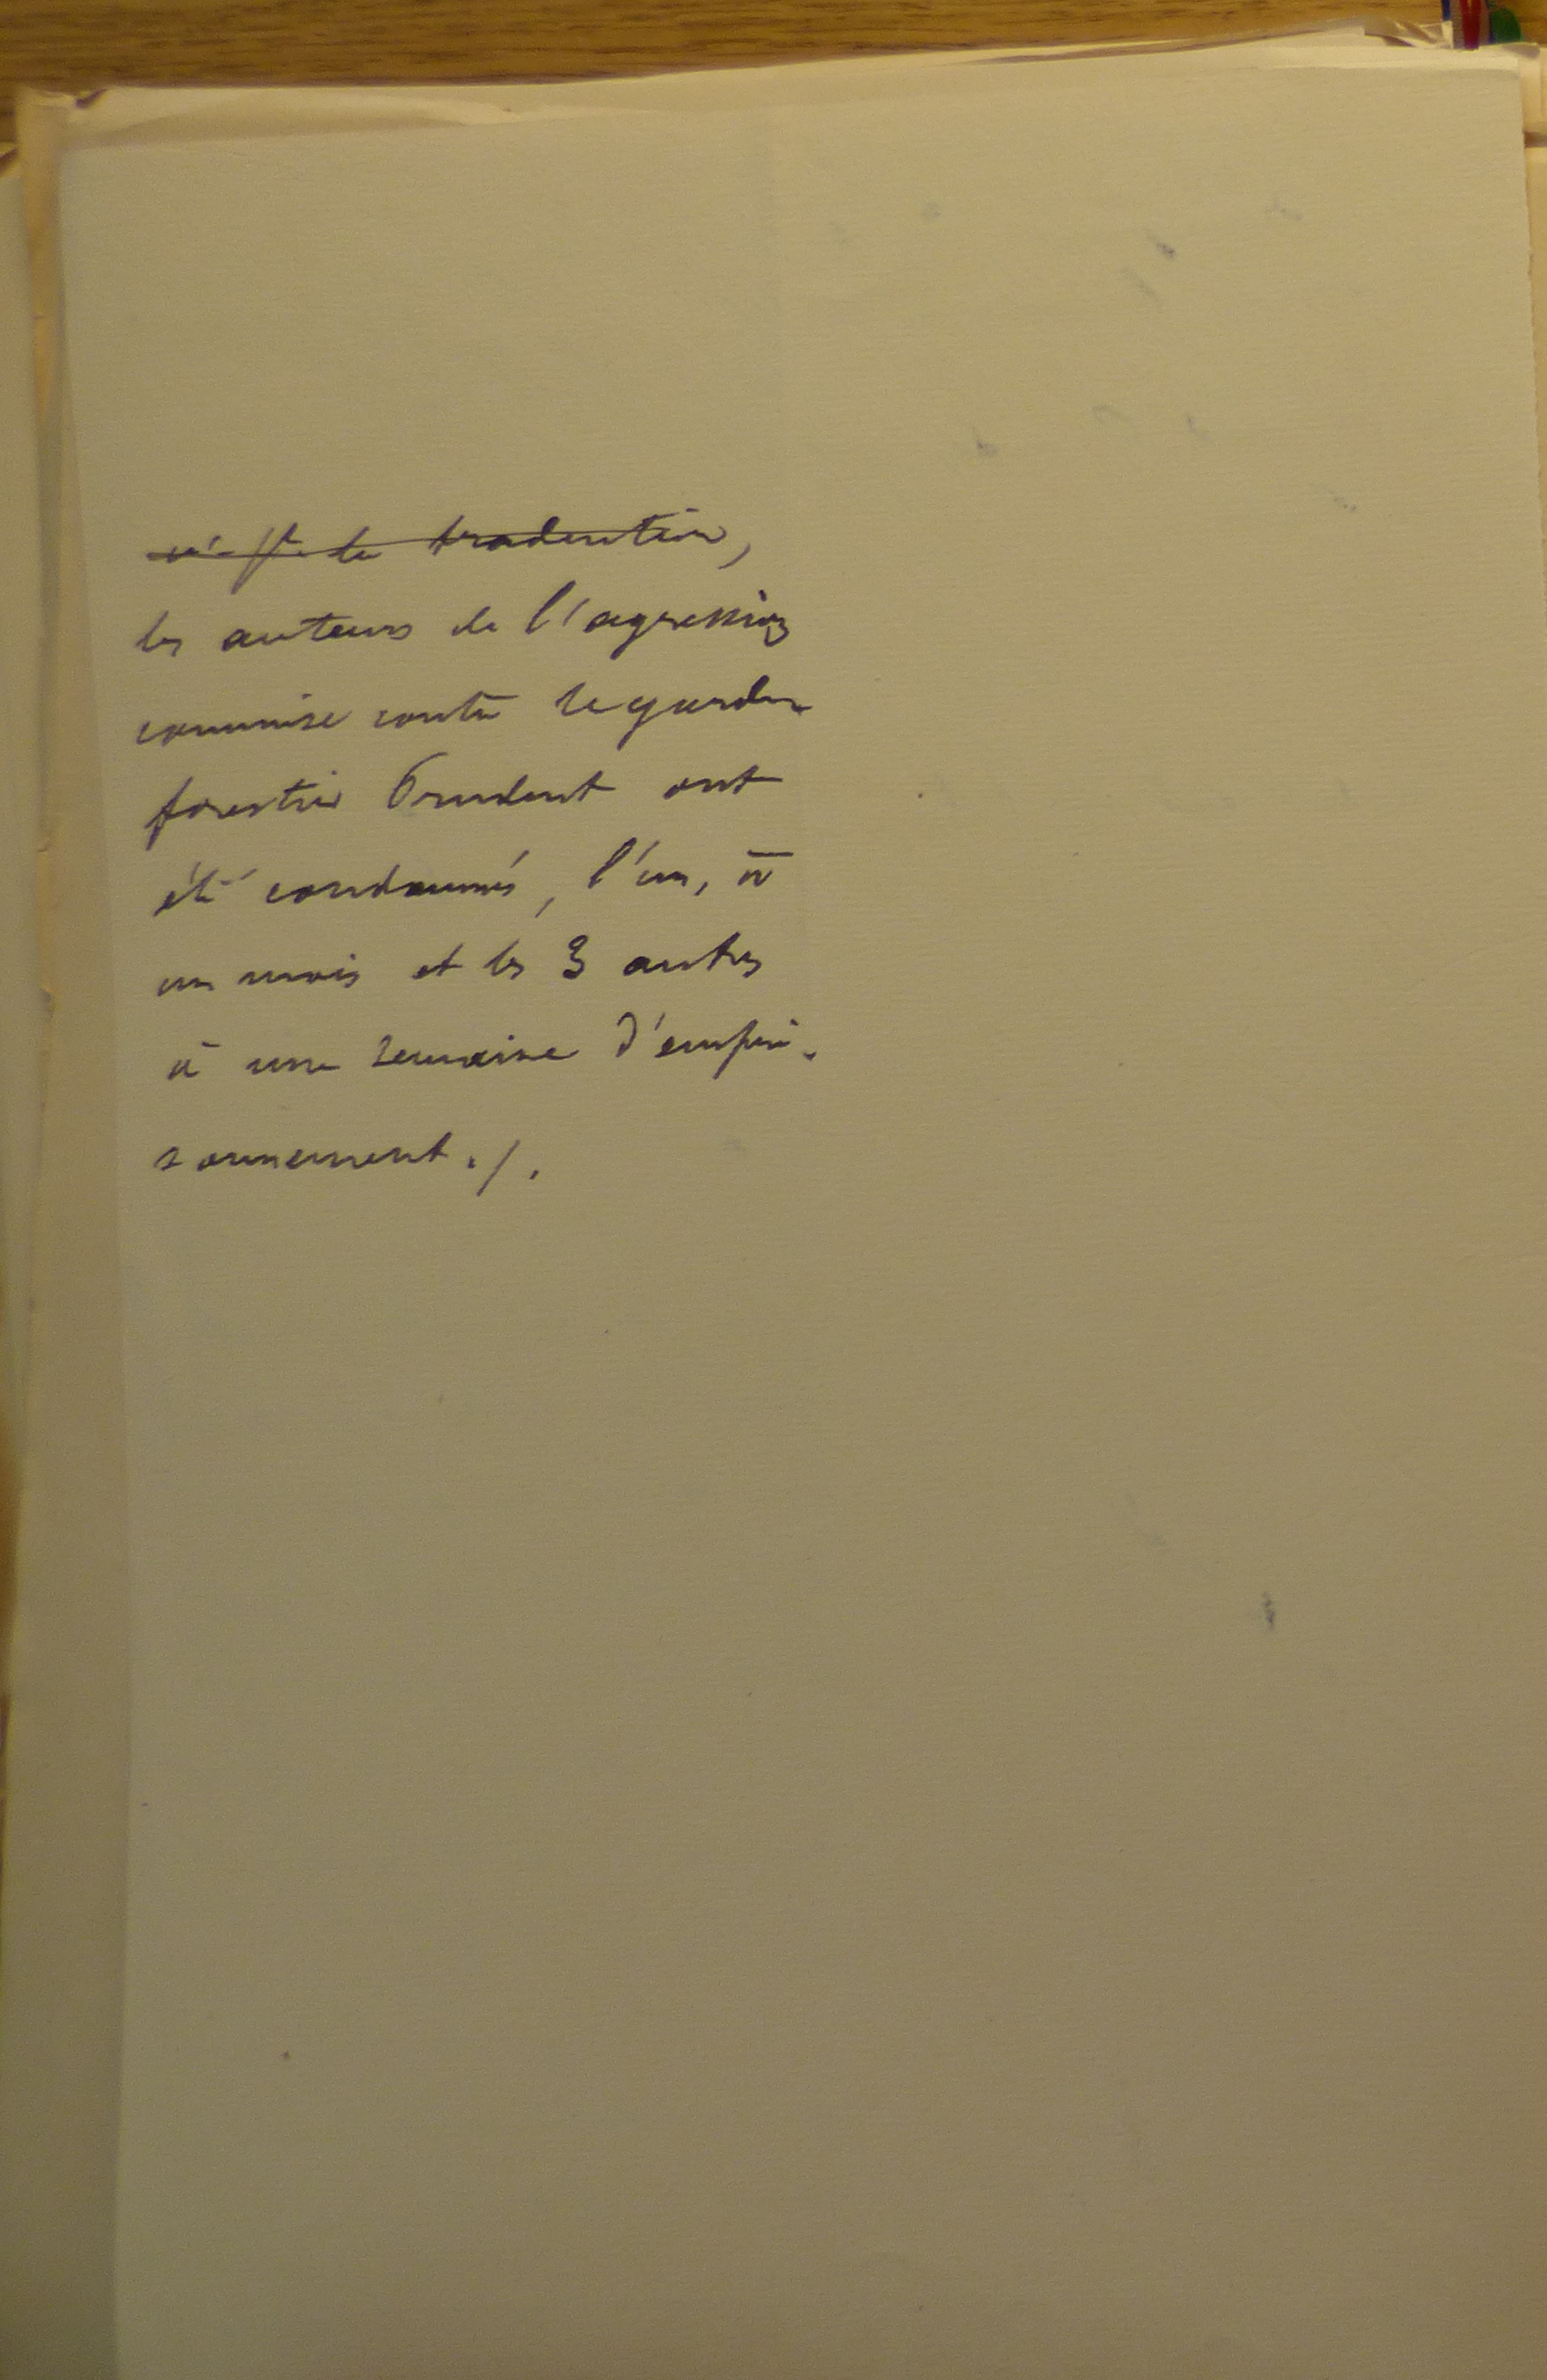 de traduction,
les auteurs de l'agression
commise contre le garde
forestier Prudent ont
été condamnés, l'un, à
un mois et les 3 autres
à une semaine d'empri-
sonnement./.